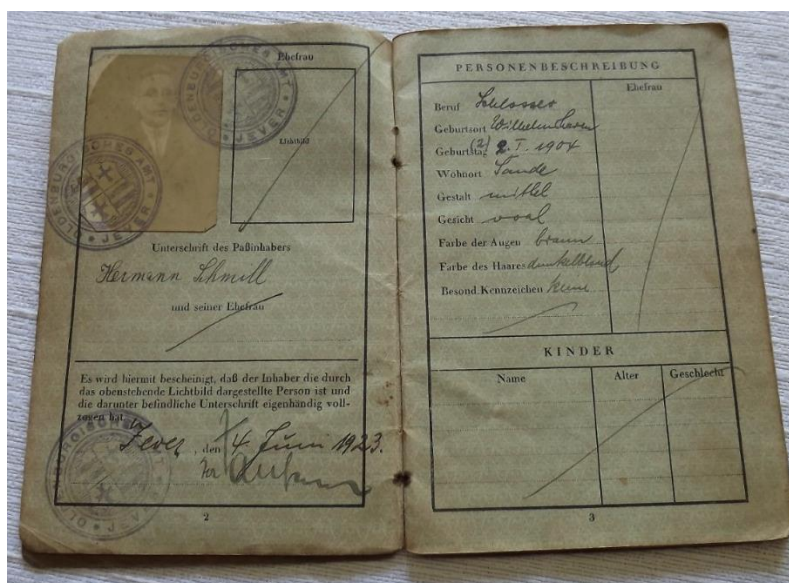 OLDENBURGISCHES AMT * JEVER *
OLDENBURGISCHES AMT * JEVER *
Ehefrau
Lichtbild
Unterschrift des Paßinhabers
Hermann Schmell
und seiner Ehefrau
Es wird hiermit bescheinigt, daß der Inhaber die durch
das obenstehende Lichtbild dargestellte Person ist und
die darunter befindliche Unterschrift eigenhändig voll-
zogen hat.
Jever, den 4 Juni 1923.
OLDENBURGISCHES AMT * JEVER *
2
PERSONENBESCHREIBUNG
Ehefrau
Beruf Schlosser
Geburtsort Wilhelmshaven
Geburtstag (2) 2. I. 1904
Wohnort Sande
Gestalt mittel
Gesicht oval
Farbe der Augen braun
Farbe des Haares dunkelblond
Besond Kennzeichen keine
KINDER
Name Alter Geschlecht
3